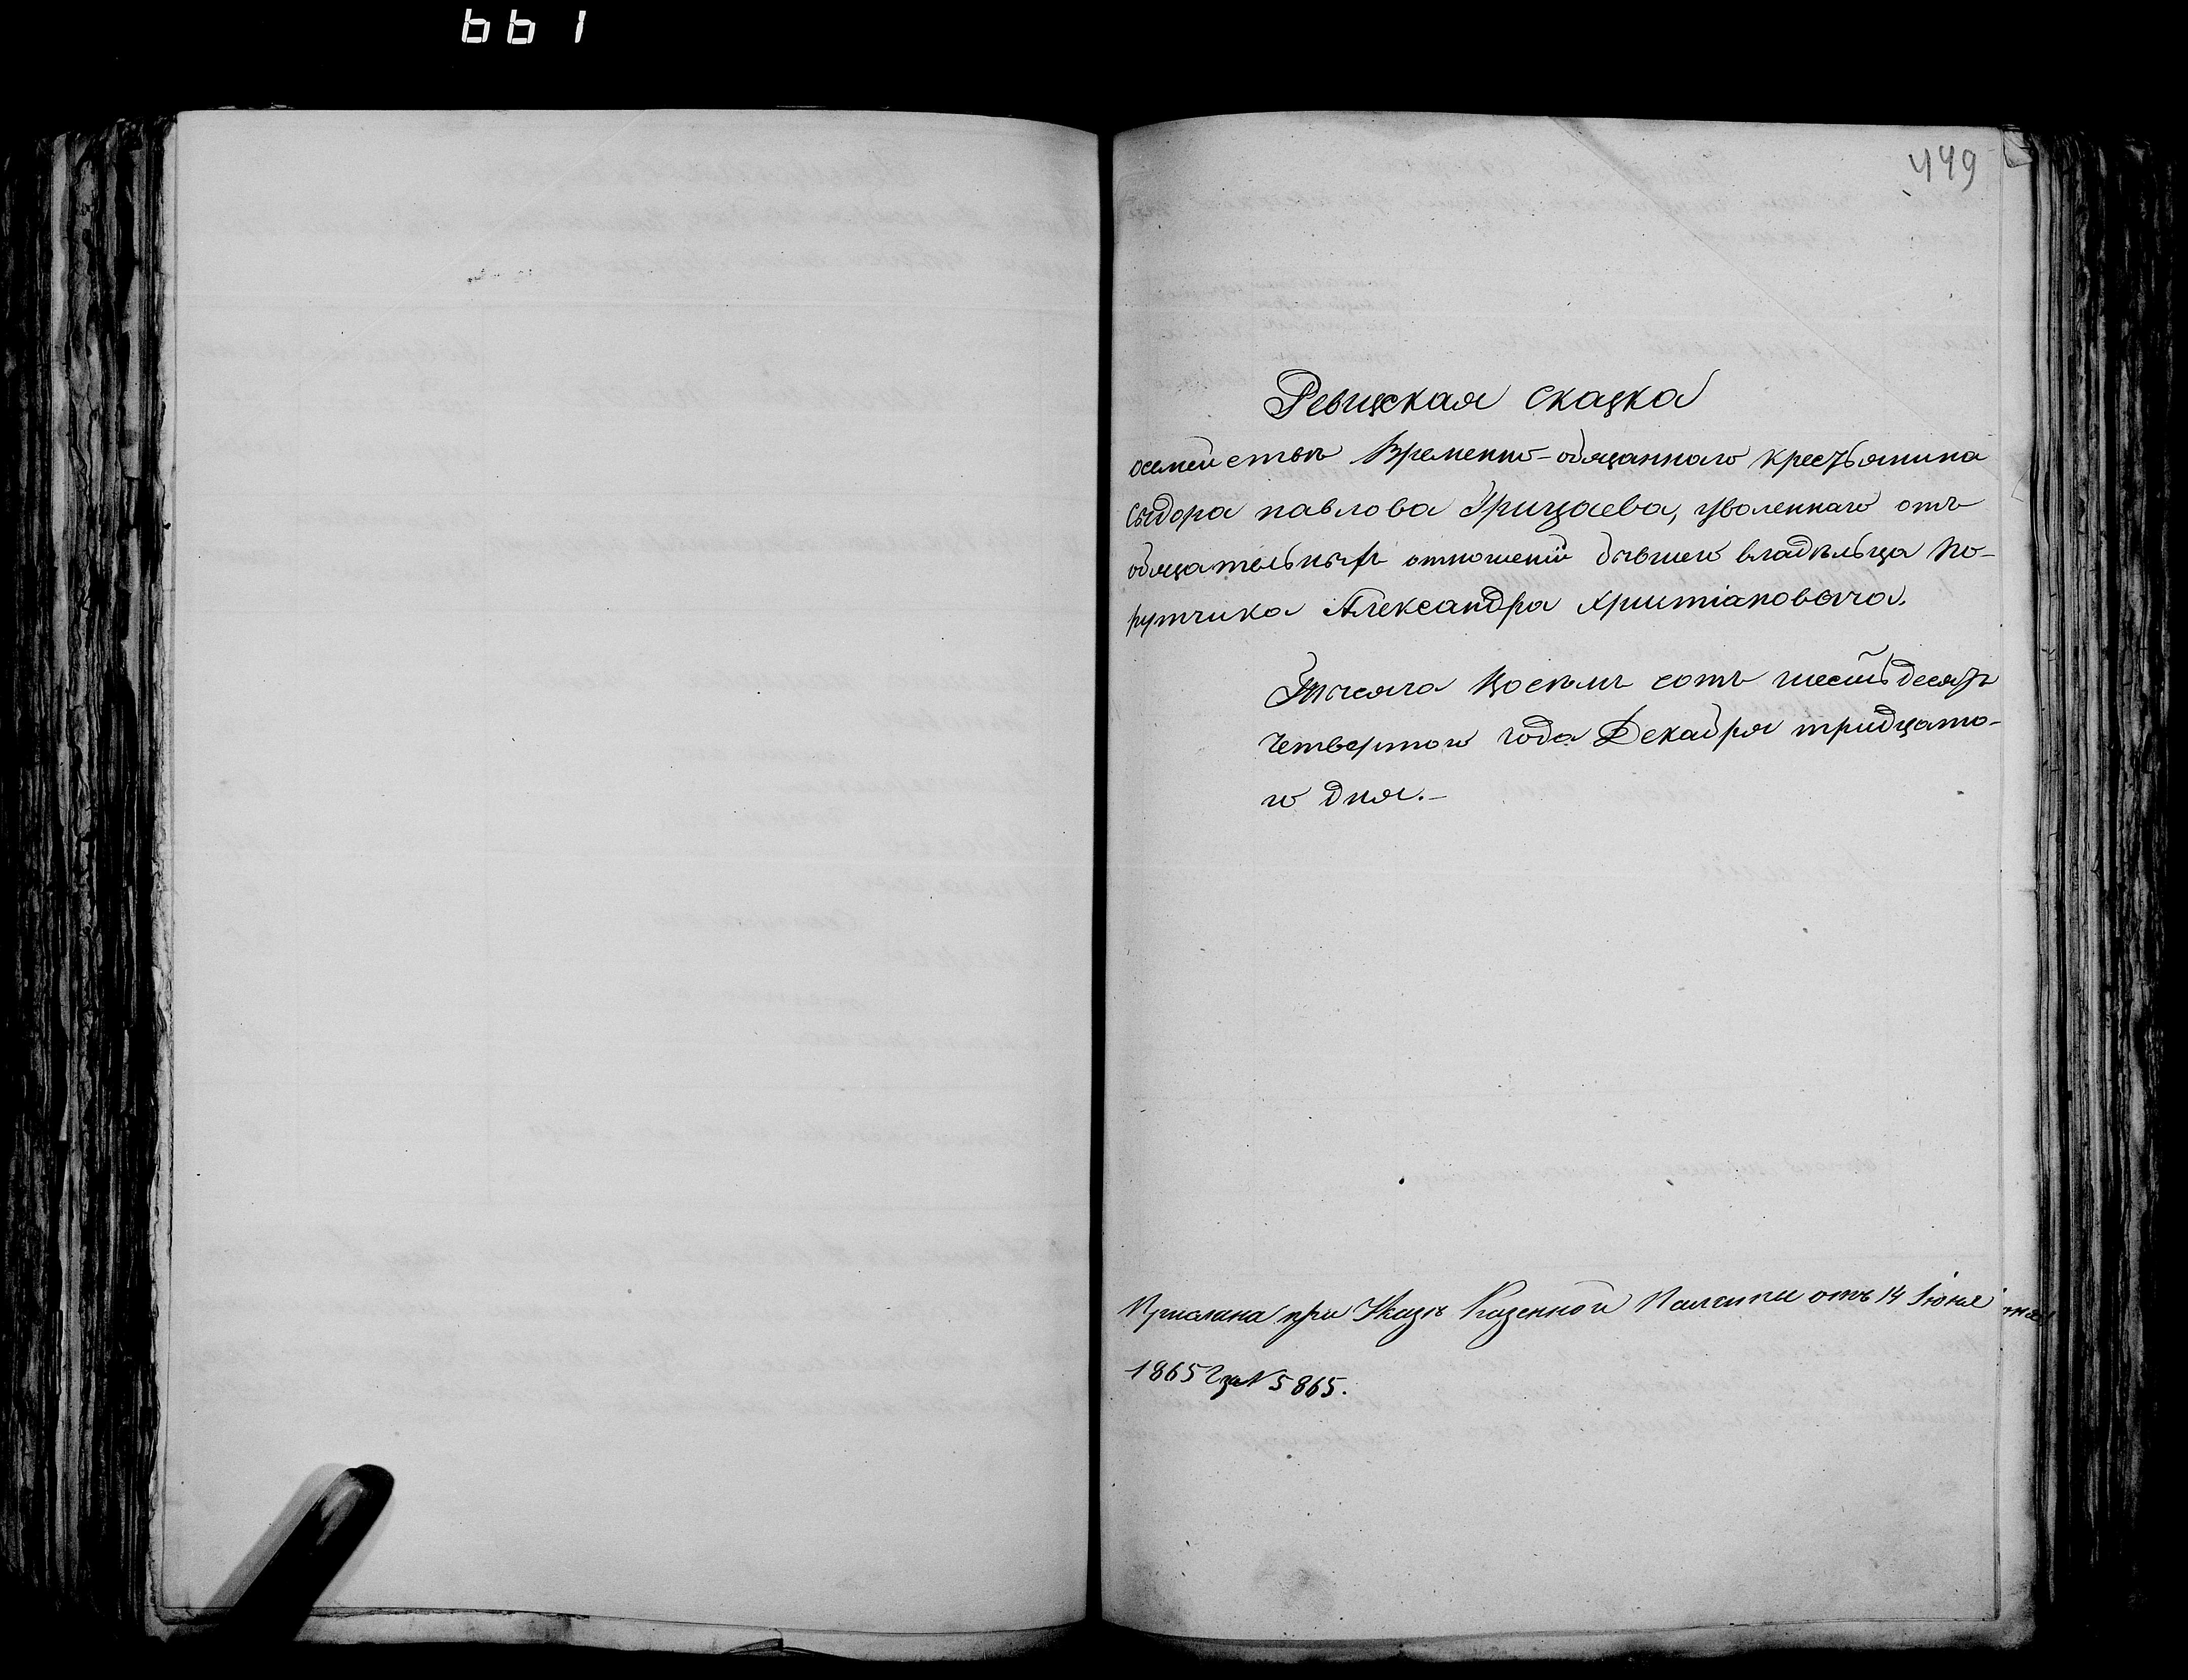 661
449
Ревизская сказка
о семействѣ Временно-обязаннаго крестьянина
Сидора Павлова Грицаева, уволеннаго отъ
обязательныхъ отношеній бывшего владѣльца По-
ручика Александра Христіановича.
Тысяча Восемь сотъ шестьдесятъ
четвертого года Декабря тридцато-
го дня.—
Прислана при Указѣ Казенной Палаты отъ 14 Іюня
1865 г за N 5865.